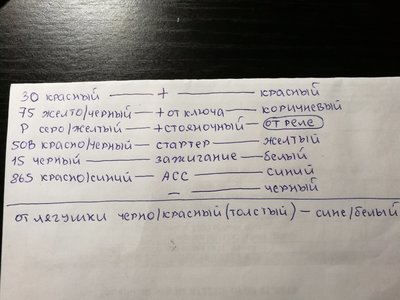 30 красный — + — красный
75 желто/черный — + от ключа — коричневый
Р серо/желтый — + стояночный — от реле
50В красно/черный — стартер — желтый
15 черный — зажигание — белый
86S красно/синий — АСС — синий
— — черный
от лягушки черно/красный (толстый) — сине/белый